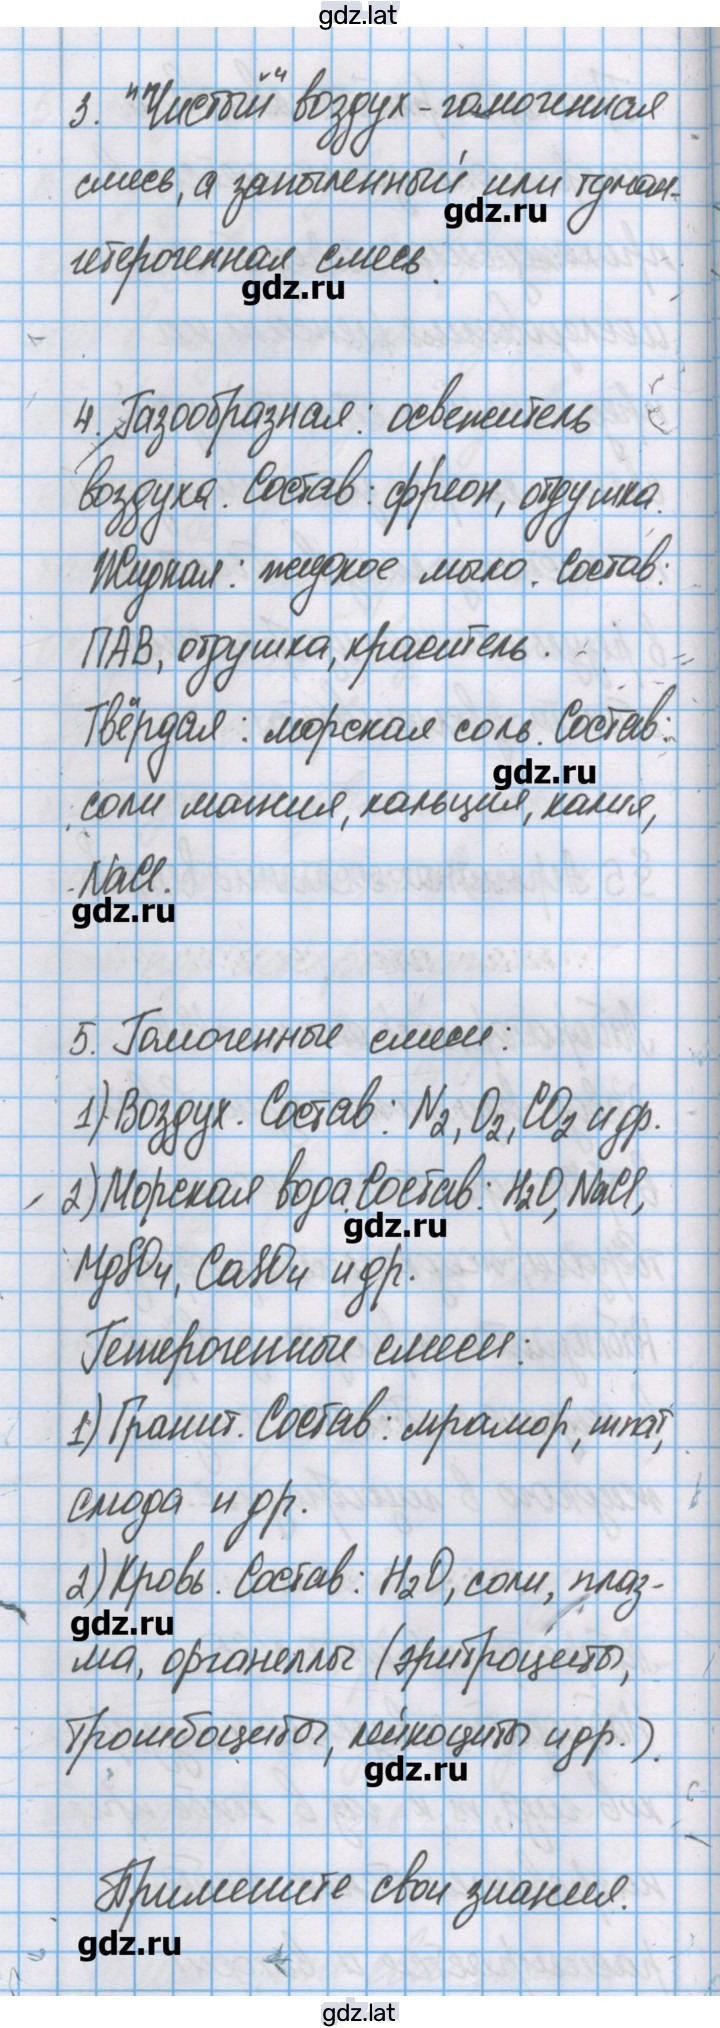 gdz.lat
3. "Чистый" воздух - гомогенная
смесь, а запыленный или туман-
gdz.ru
гетерогенная смесь.
gdz.ru
4. Газообразная: освежитель
воздуха. Состав: фреон, отдушка.
Жидкая: жидкое мыло. Состав:
ПАВ, отдушка, краситель.
Твёрдая: морская соль. Состав:
gdz.ru
соли магния, кальция, калия,
NaCl.
gdz.ru
5. Гомогенные смеси:
1) Воздух. Состав: N2, O2, CO2 и др.
2) Морская вода. Состав: H2O, NaCl,
gdz.ru
MgSO4, CaSO4 и др.
Гетерогенные смеси:
1) Гранит. Состав: мрамор, шпат,
слюда и др.
2) Кровь. Состав: H2O, соли, плаз-
gdz.ru
ма, органеллы (эритроциты,
тромбоциты, лейкоциты и др.).
gdz.ru
Примените свои знания.
gdz.ru
gdz.lat